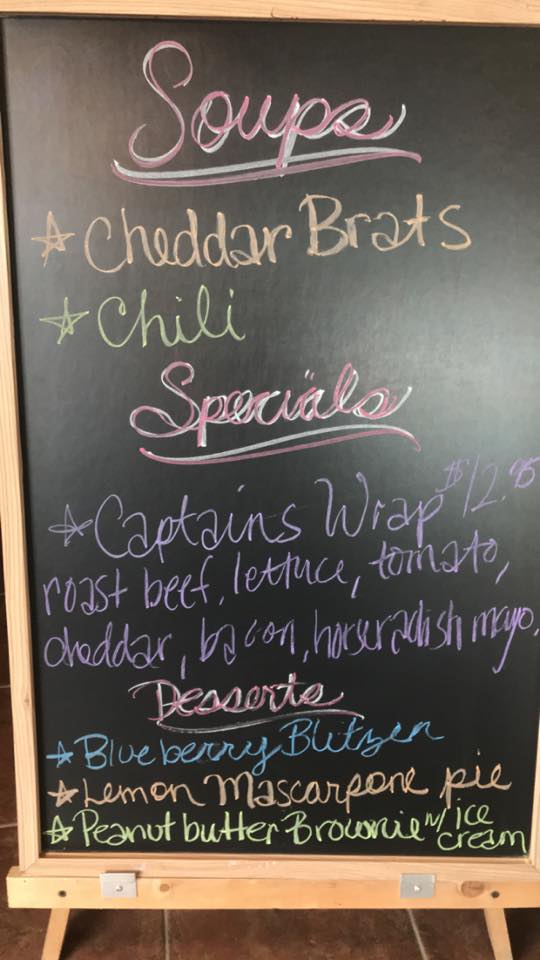 Soups
☆ Cheddar Brats
☆ Chili
Specials
☆ Captains Wrap $12.95
roast beef, lettuce, tomato,
cheddar, bacon, horseradish mayo.
Desserts
☆ Blueberry Blitzen
☆ Lemon Mascarpone pie
☆ Peanut butter Brownie w/ ice
cream